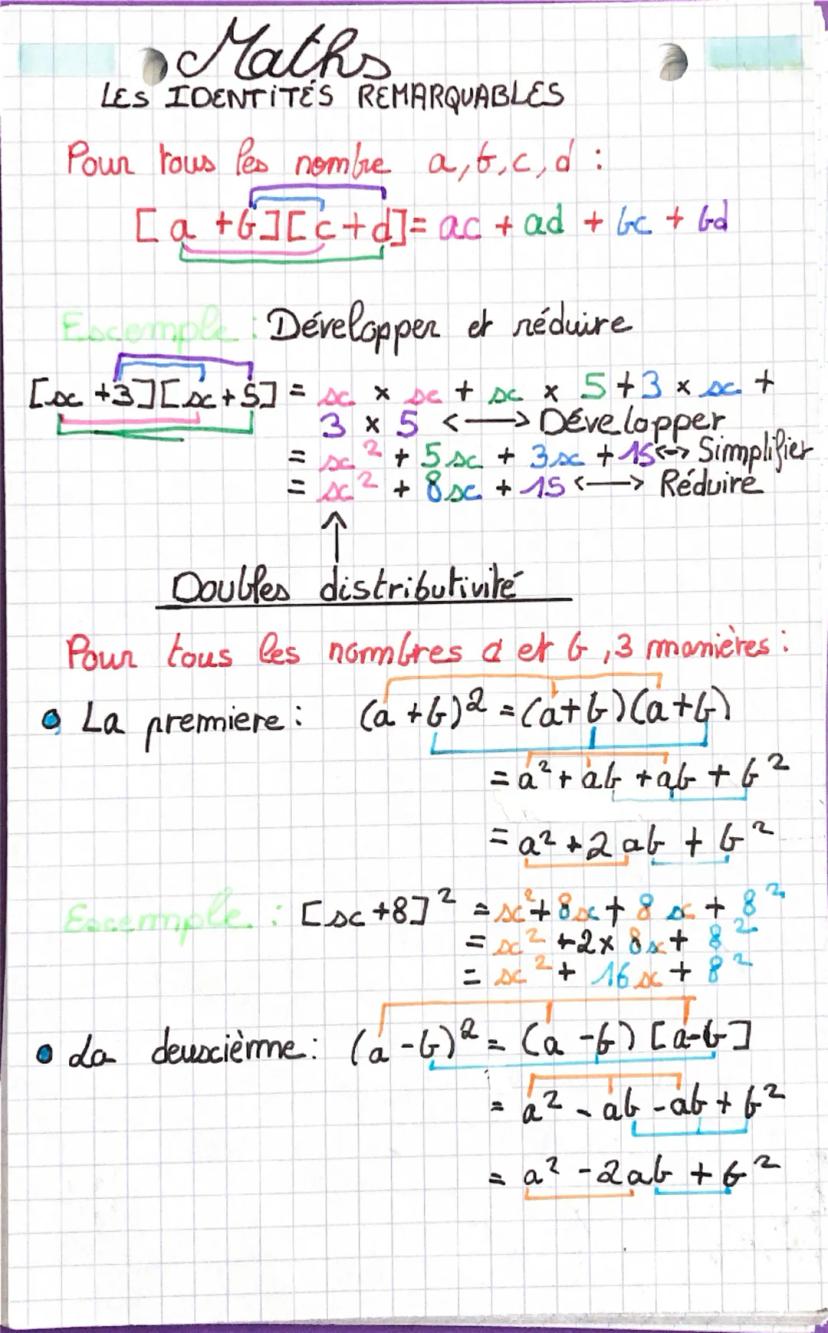 Maths
LES IDENTITÉS REMARQUABLES
Pour tous les nombre a, b, c, d :
[a + b][c + d] = ac + ad + bc + bd
Excemple : Développer et réduire
[x + 3][x + 5] = x × x + x × 5 + 3 × x +
3 × 5 <—> Développer
= x² + 5x + 3x + 15 <-> Simplifier
= x² + 8x + 15 <—> Réduire
↑
Doubles distributivité
Pour tous les nombres a et b, 3 manières :
• La premiere : (a + b)² = (a + b)(a + b)
= a² + ab + ab + b²
= a² + 2ab + b²
Excemple : [x + 8]² = x² + 8x + 8x + 8²
= x² + 2 × 8x + 8²
= x² + 16x + 8²
• La deuxième : (a - b)² = (a - b)[a - b]
= a² - ab - ab + b²
= a² - 2ab + b²